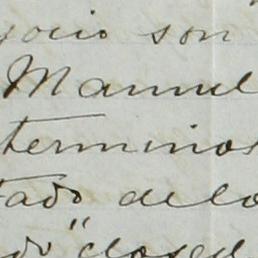 gocio son
Manuel
terminos
tado de lo
do" closed